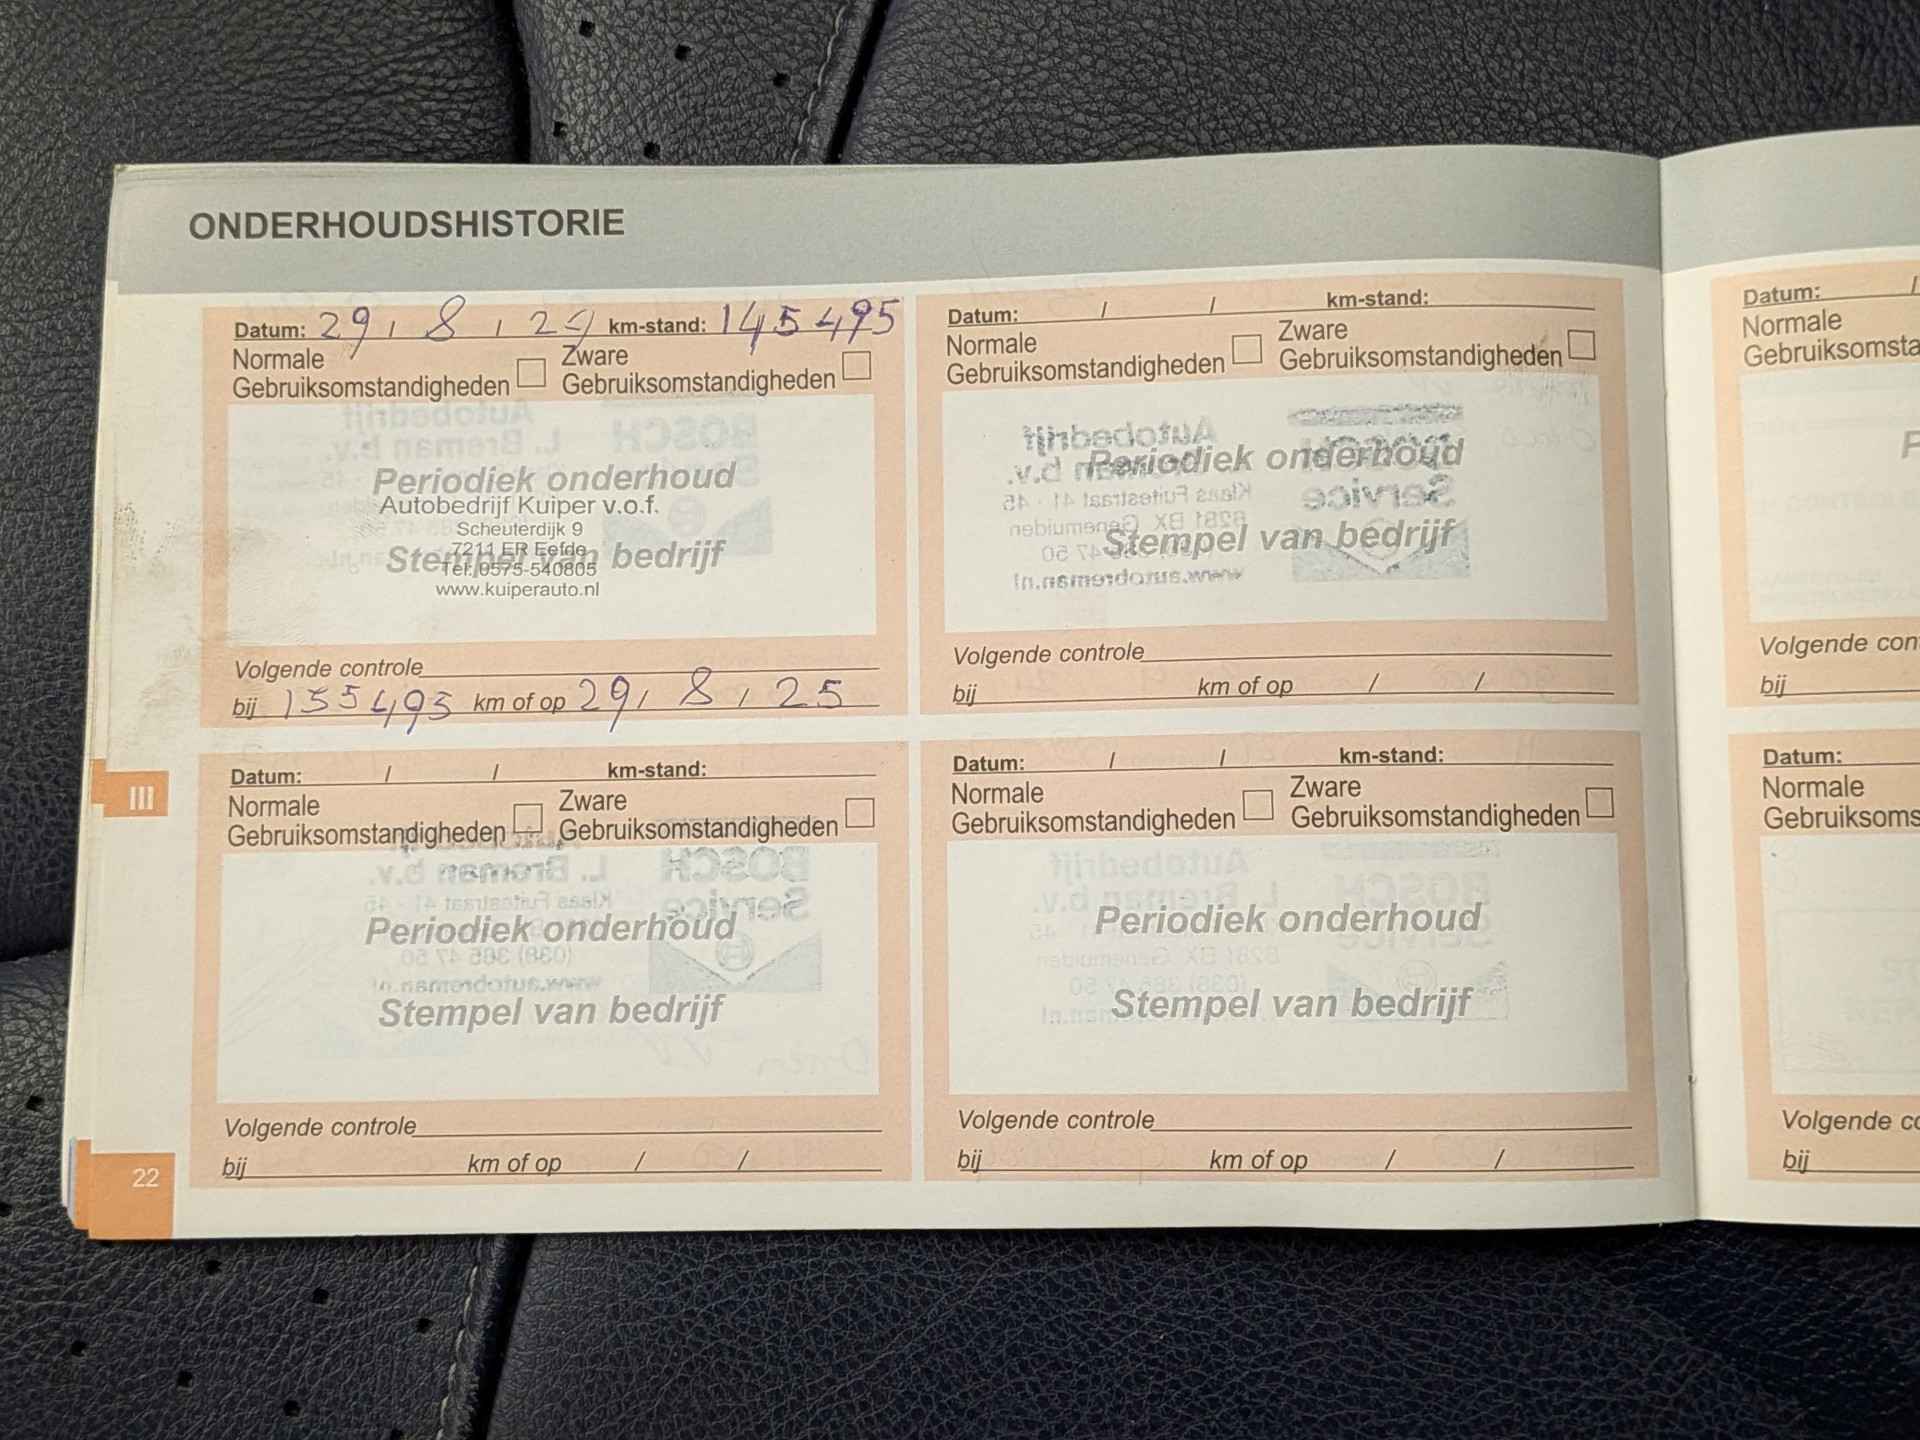 ONDERHOUDSHISTORIE
Datum: 29 / 8 / 24 km-stand: 145495
Normale Gebruiksomstandigheden
Zware Gebruiksomstandigheden
Periodiek onderhoud
Autobedrijf Kuiper v.o.f.
Scheuterdijk 9
7211 ER Eefde
Stempel van bedrijf
Tel: 0575-540805
www.kuiperauto.nl
Volgende controle
bij 155495 km of op 29 / 8 / 25
Datum: / / km-stand:
Normale Gebruiksomstandigheden
Zware Gebruiksomstandigheden
Periodiek onderhoud
Stempel van bedrijf
Volgende controle
bij km of op / /
Datum: / / km-stand:
Normale Gebruiksomstandigheden
Zware Gebruiksomstandigheden
Periodiek onderhoud
Stempel van bedrijf
Volgende controle
bij km of op / /
Datum: / / km-stand:
Normale Gebruiksomstandigheden
Zware Gebruiksomstandigheden
Periodiek onderhoud
Stempel van bedrijf
Volgende controle
bij km of op / /
III
22
Datum: /
Normale
Gebruiksomsta
P
Volgende con
bij
Datum:
Normale
Gebruiksoms
Volgende co
bij